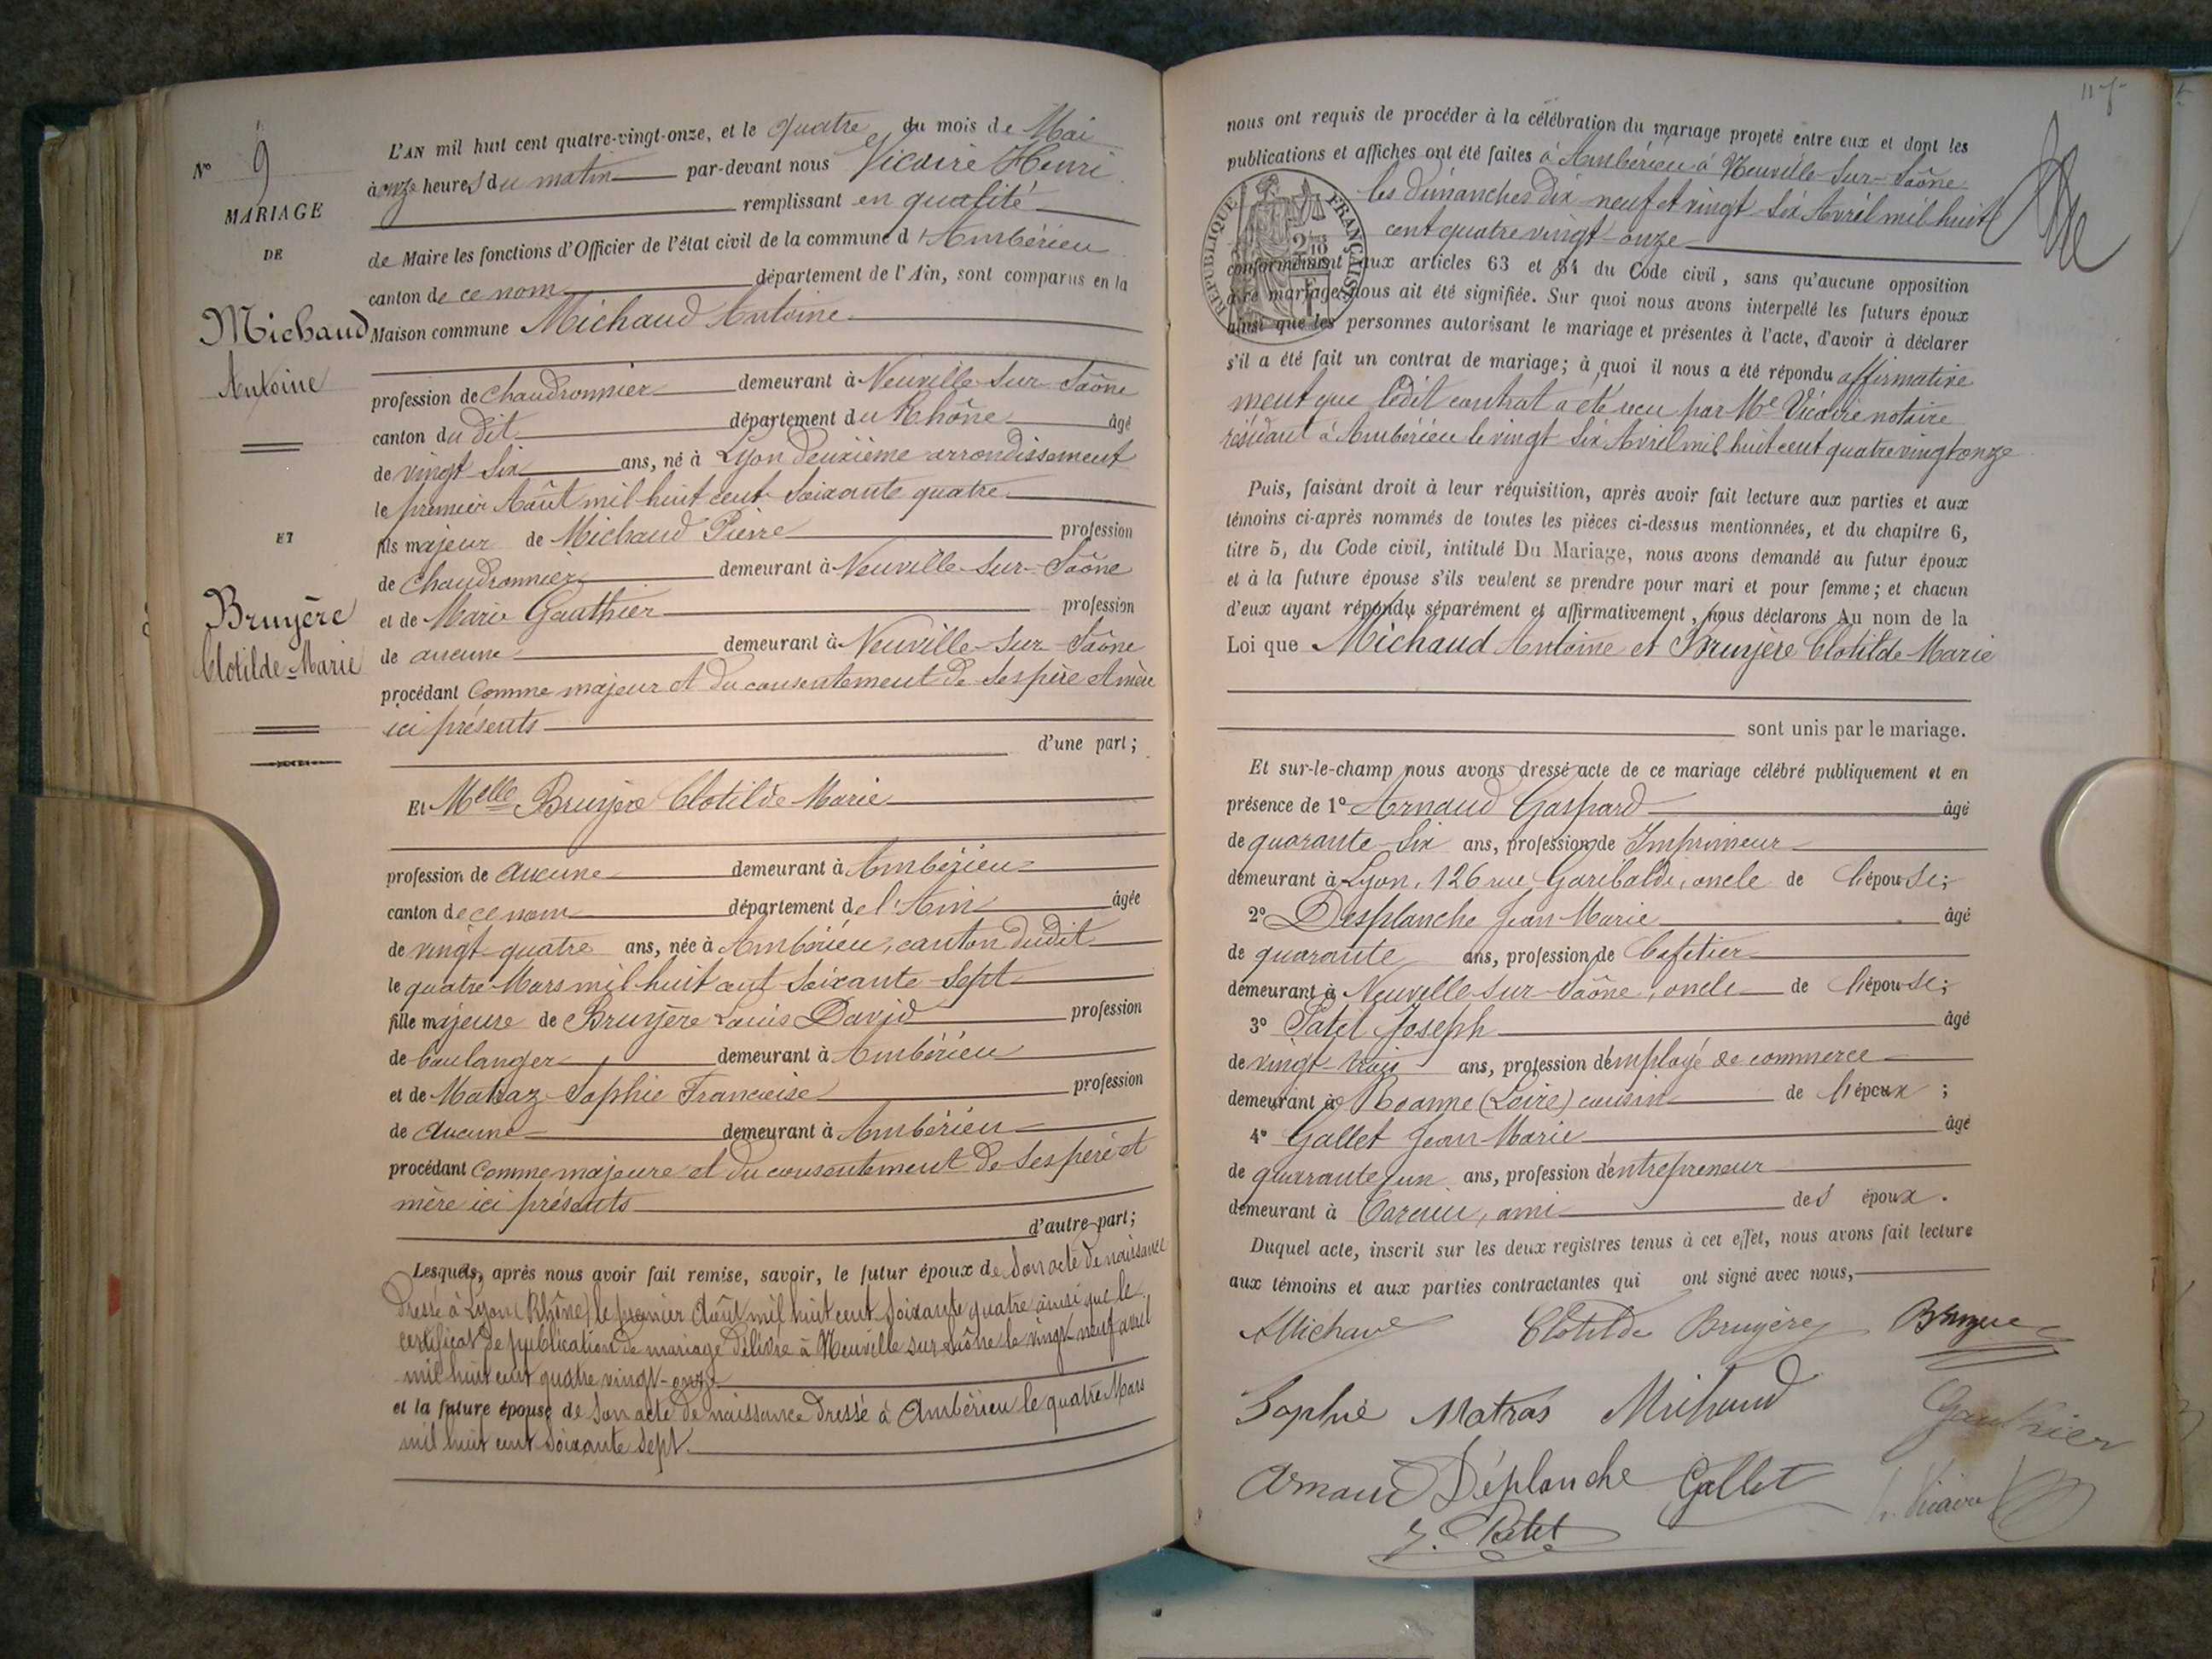 N° 9
MARIAGE
DE
Michaud
Antoine
ET
Bruyère
Clotilde-Marie
L'AN mil huit cent quatre-vingt-onze, et le quatre du mois de Mai
à onze heures du matin par-devant nous Vicaire Henri
remplissant en qualité
de Maire les fonctions d'Officier de l'état civil de la commune d'Ambérieu
canton de ce nom département de l'Ain, sont comparus en la
Maison commune Michaud Antoine
profession de chaudronnier demeurant à Neuville-sur-Saône
canton du dit département du Rhône âgé
de vingt six ans, né à Lyon deuxième arrondissement
le premier Août mil huit cent soixante quatre
fils majeur de Michaud Pierre profession
de chaudronnier demeurant à Neuville-sur-Saône
et de Marie Gauthier profession
de aucune demeurant à Neuville-sur-Saône
procédant comme majeur et du consentement de ses père et mère
ici présents
d'une part;
Et Melle Bruyère Clotilde Marie
profession de aucune demeurant à Ambérieu
canton de ce nom département de l'Ain âgée
de vingt-quatre ans, née à Ambérieu, canton dudit
le quatre Mars mil huit cent soixante-sept
fille majeure de Bruyère Louis David profession
de boulanger demeurant à Ambérieu
et de Matraz Sophie Françoise profession
de aucune demeurant à Ambérieu
procédant comme majeure et du consentement de ses père et
mère ici présents
d'autre part;
Lesquels, après nous avoir fait remise, savoir, le futur époux de son acte de naissance
dressé à Lyon (Rhône) le premier Août mil huit cent soixante quatre ainsi que le
certificat de publication de mariage délivré à Neuville sur Saône le vingt-neuf avril
mil huit cent quatre vingt-onze
et la future épouse de son acte de naissance dressé à Ambérieu le quatre Mars
mil huit cent soixante sept.
nous ont requis de procéder à la célébration du mariage projeté entre eux et dont les
publications et affiches ont été faites à Ambérieu à Neuville-sur-Saône
les dimanches dix neuf et vingt six Avril mil huit
cent quatre vingt-onze
RÉPUBLIQUE FRANÇAISE
conformément aux articles 63 et 64 du Code civil, sans qu'aucune opposition
à ce mariage nous ait été signifiée. Sur quoi nous avons interpellé les futurs époux
ainsi que les personnes autorisant le mariage et présentes à l'acte, d'avoir à déclarer
s'il a été fait un contrat de mariage; à quoi il nous a été répondu affirmative
ment que ledit contrat a été reçu par Me Vicaire notaire
résidant à Ambérieu le vingt six Avril mil huit cent quatre vingt onze
Puis, faisant droit à leur réquisition, après avoir fait lecture aux parties et aux
témoins ci-après nommés de toutes les pièces ci-dessus mentionnées, et du chapitre 6,
titre 5, du Code civil, intitulé Du Mariage, nous avons demandé au futur époux
et à la future épouse s'ils veulent se prendre pour mari et pour femme; et chacun
d'eux ayant répondu séparément et affirmativement, nous déclarons Au nom de la
Loi que Michaud Antoine et Bruyère Clotilde Marie
sont unis par le mariage.
Et sur-le-champ nous avons dressé acte de ce mariage célébré publiquement et en
présence de 1° Arnaud Gaspard âgé
de quarante-six ans, profession de Imprimeur
demeurant à Lyon, 126 rue Garibaldi, oncle de l'épouse;
2° Desplanche Jean Marie âgé
de quarante ans, profession de Cafetier
demeurant à Neuville-sur-Saône, oncle de l'épouse;
3° Patet Joseph âgé
de vingt-trois ans, profession d'employé de commerce
demeurant à Roanne (Loire) cousin de l'époux;
4° Gallet Jean-Marie âgé
de quarante un ans, profession d'entrepreneur
demeurant à ami des époux.
Duquel acte, inscrit sur les deux registres tenus à cet effet, nous avons fait lecture
aux témoins et aux parties contractantes qui ont signé avec nous,
AMichaud Clotilde Bruyère Bruyère
Sophie Matras Michaud Gauthier
Arnaud Déplanche Gallet h. Vicaire
J. Patet